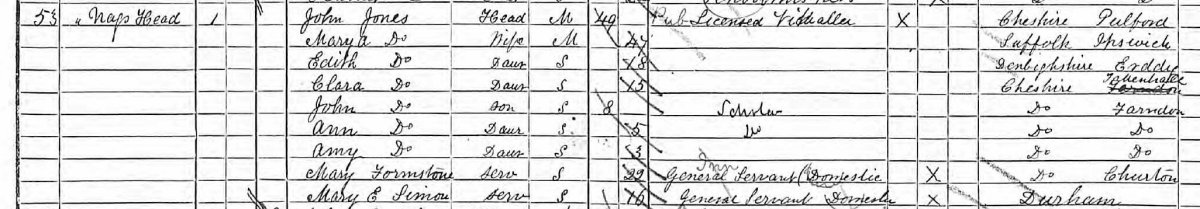 53 " Nags Head 1 John Jones Head M 49 Pub Licensed Victualler X Cheshire Pulford
Mary A Do Wife M 47 Suffolk Ipswich
Edith Do Daur S 18 Denbighshire Erddy
Clara Do Daur S 15 Cheshire Tattenhall Farndon
John Do Son S 8 Scholar Do Farndon
Ann Do Daur S 5 Do Do Do
Amy Do Daur S 3 Do Do
Mary Formstone Serv S 29 General Servant (Domestic Inn X Do Churton
Mary E Simon Serv S 16 General Servant Domestic X Durham